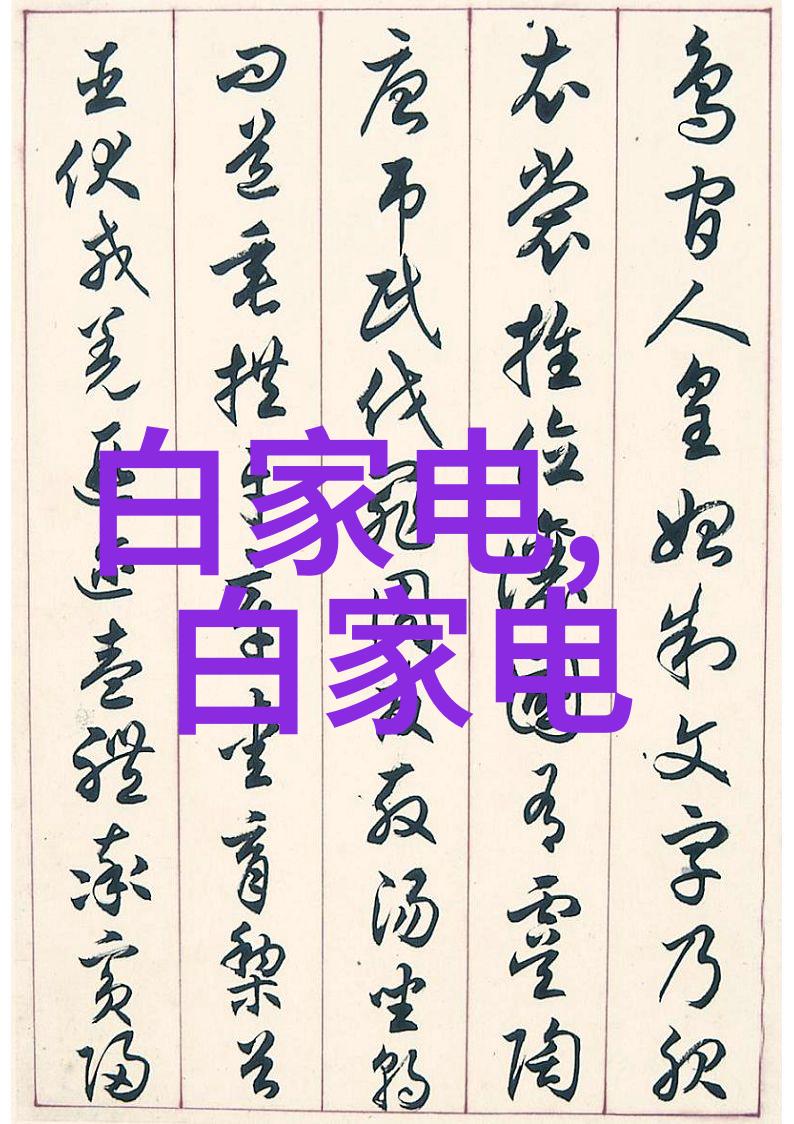 鳥官人皇始制文字乃服
衣裳推位讓國有虞陶
唐弔民伐罪周發殷湯坐朝
問道垂拱平章愛育黎首
臣伏戎羌遐邇壹體率賓歸
白家电,
白家电